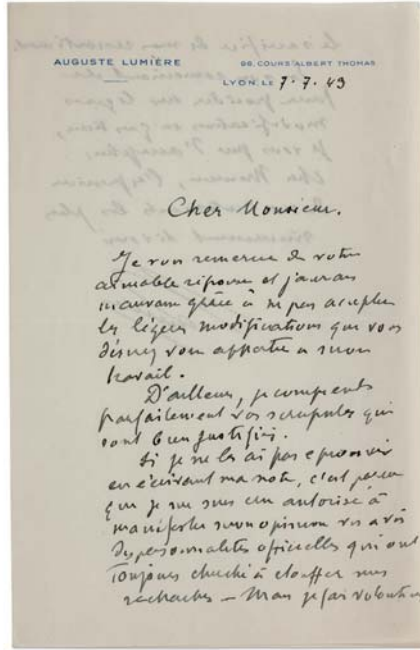 AUGUSTE LUMIÈRE
98, COURS ALBERT THOMAS
LYON, LE 7.7.49
Cher Monsieur.
Je vous remercie de votre
aimable réponse et j'aurais
mauvaise grâce à ne pas accepter
les légères modifications que vous
désirez voir apporter à mon
travail.
D'ailleurs, je comprends
parfaitement vos scrupules qui
sont bien justifiés.
Si je ne les ai pas éprouvés
en écrivant ma note, c'est parce
que je me suis cru autorisé à
manifester mon opinion vis à vis
des personnalités officielles qui ont
toujours cherché à étouffer mes
recherches — Mais je fais volontiers